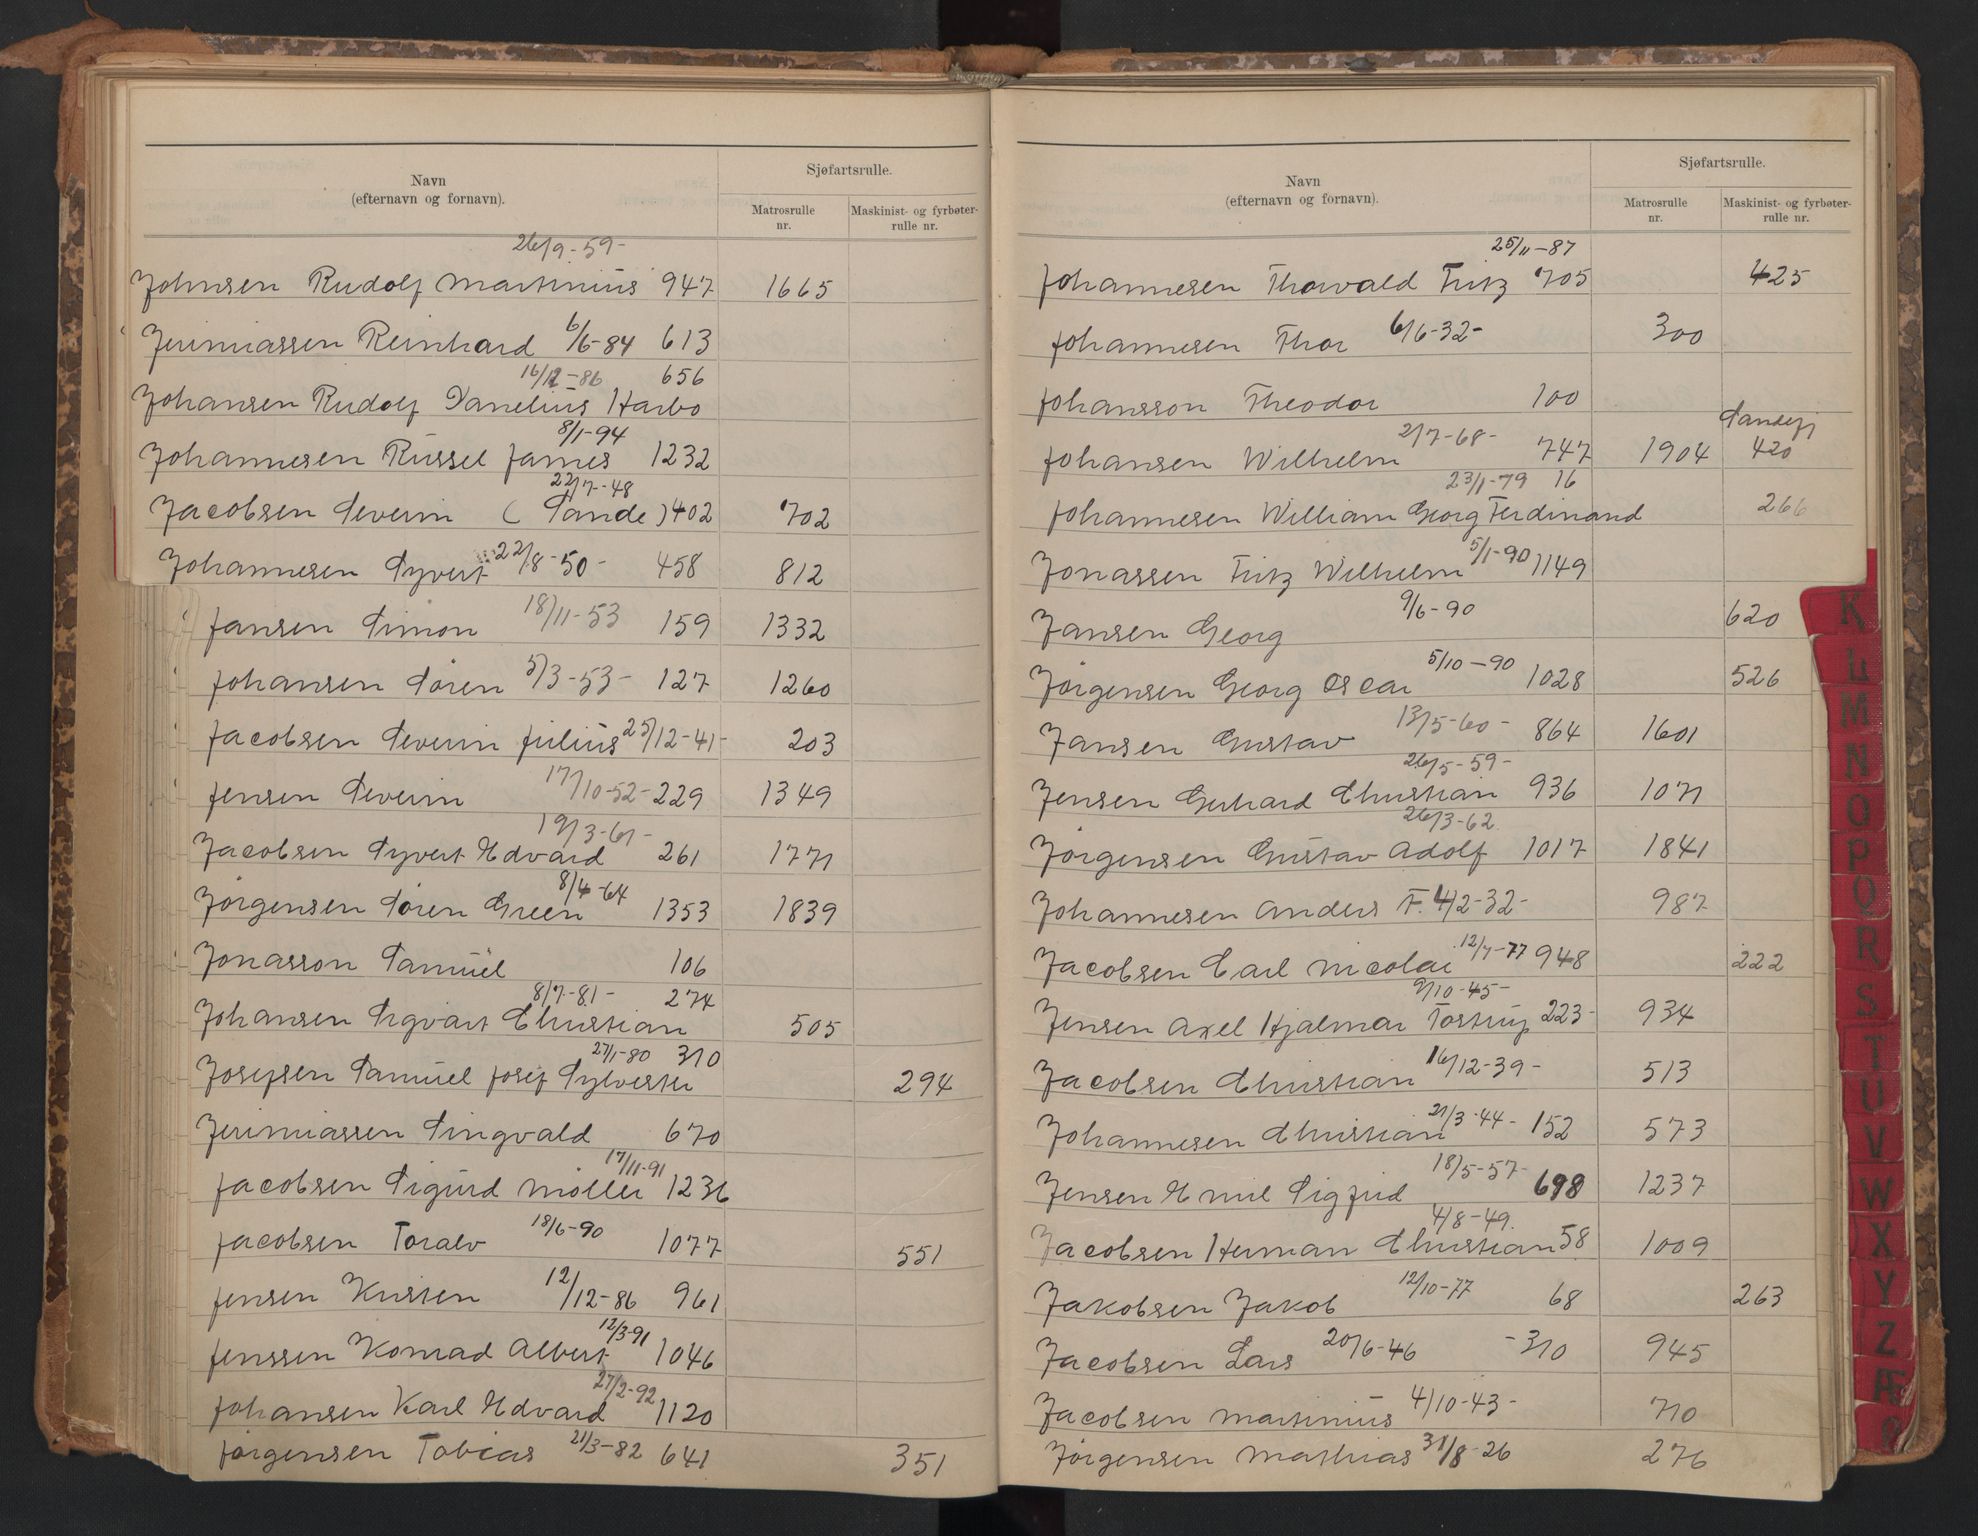 Navn
(efternavn og fornavn).
Sjøfartsrulle.
Matrosrulle nr.
Maskinist- og fyrbøter-rulle nr.
26/9-59-
Johnsen Rudolf Martinius 947 1665
Jerimiassen Reinhard 6/6-84 613
16/12-86 656
Johansen Rudolf Danelius Harbo
8/1-94
Johannesen Russel James 1232
22/7-48
Jacobsen Severin (Sande) 402 702
Johannesen Syvert 22/8-50- 458 812
Jansen Simon 18/11-53 159 1332
Johansen Søren 5/3-53- 127 1260
Jacobsen Severin Julius 25/12-41- 203
Jensen Severin 17/10-52- 229 1349
19/3-61-
Jacobsen Syvert Edvard 261 1771
8/4-64
Jørgensen Søren Green 1353 1839
Jonasson Samuel 106
8/7-81- 274
Johansen Sigvart Christian 505
27/1-80 310
Josefsen Samuel Josef Sylvester 294
Jerimiassen Singvald 670
17/11-91
Jacobsen Sigurd Møller 1236
Jacobsen Toralv 18/6-90 1077 551
Jensen Kristen 12/12-86 961
12/3-91
Jenssen Konrad Albert 1046
27/2-92
Johansen Karl Edvard 1120
Jørgensen Tobias 21/3-82 641 351
Navn
(efternavn og fornavn).
Sjøfartsrulle.
Matrosrulle nr.
Maskinist- og fyrbøter-rulle nr.
25/11-87
Johannesen Thorvald Fritz 705 425
Johannesen Thor 6/6-32- 300
Johansson Theodor 100
Sandefj
Johansen Wilhelm 2/7-68- 747 1904 420
23/1-79 16
Johannesen William Georg Ferdinand 266
Jonassen Fritz Wilhelm 5/1-90 1149
Jansen Georg 9/6-90 620
5/10-90
Jørgensen Georg Oscar 1028 526
Jansen Gustav 13/5-60- 864 1601
26/5-59-
Jensen Gerhard Christian 936 1071
26/3-62.
Jørgensen Gustav Adolf 1017 1841
Johannesen Anders F. 4/2-32- 987
Jacobsen Carl Nicolai 12/7-77 948 222
9/10-45-
Jensen Axel Hjalmar Tostrup 223- 934
Jacobsen Christian 16/12-39- 513
Johannesen Christian 21/3-44- 152 573
Jensen Emil Sigfrid 18/5-57- 698 1237
4/8-49.
Jacobsen Herman Christian 58 1009
Jakobsen Jakob 12/10-77 68 263
Jacobsen Lars 20/6-46 -310 945
Jacobsen Martinius 4/10-43- 710
Jørgensen Mathias 31/8-26 276
K
L
M
N
O
P
Q
R
S
T
U
V
W
X
Y
Z
Æ
Ø